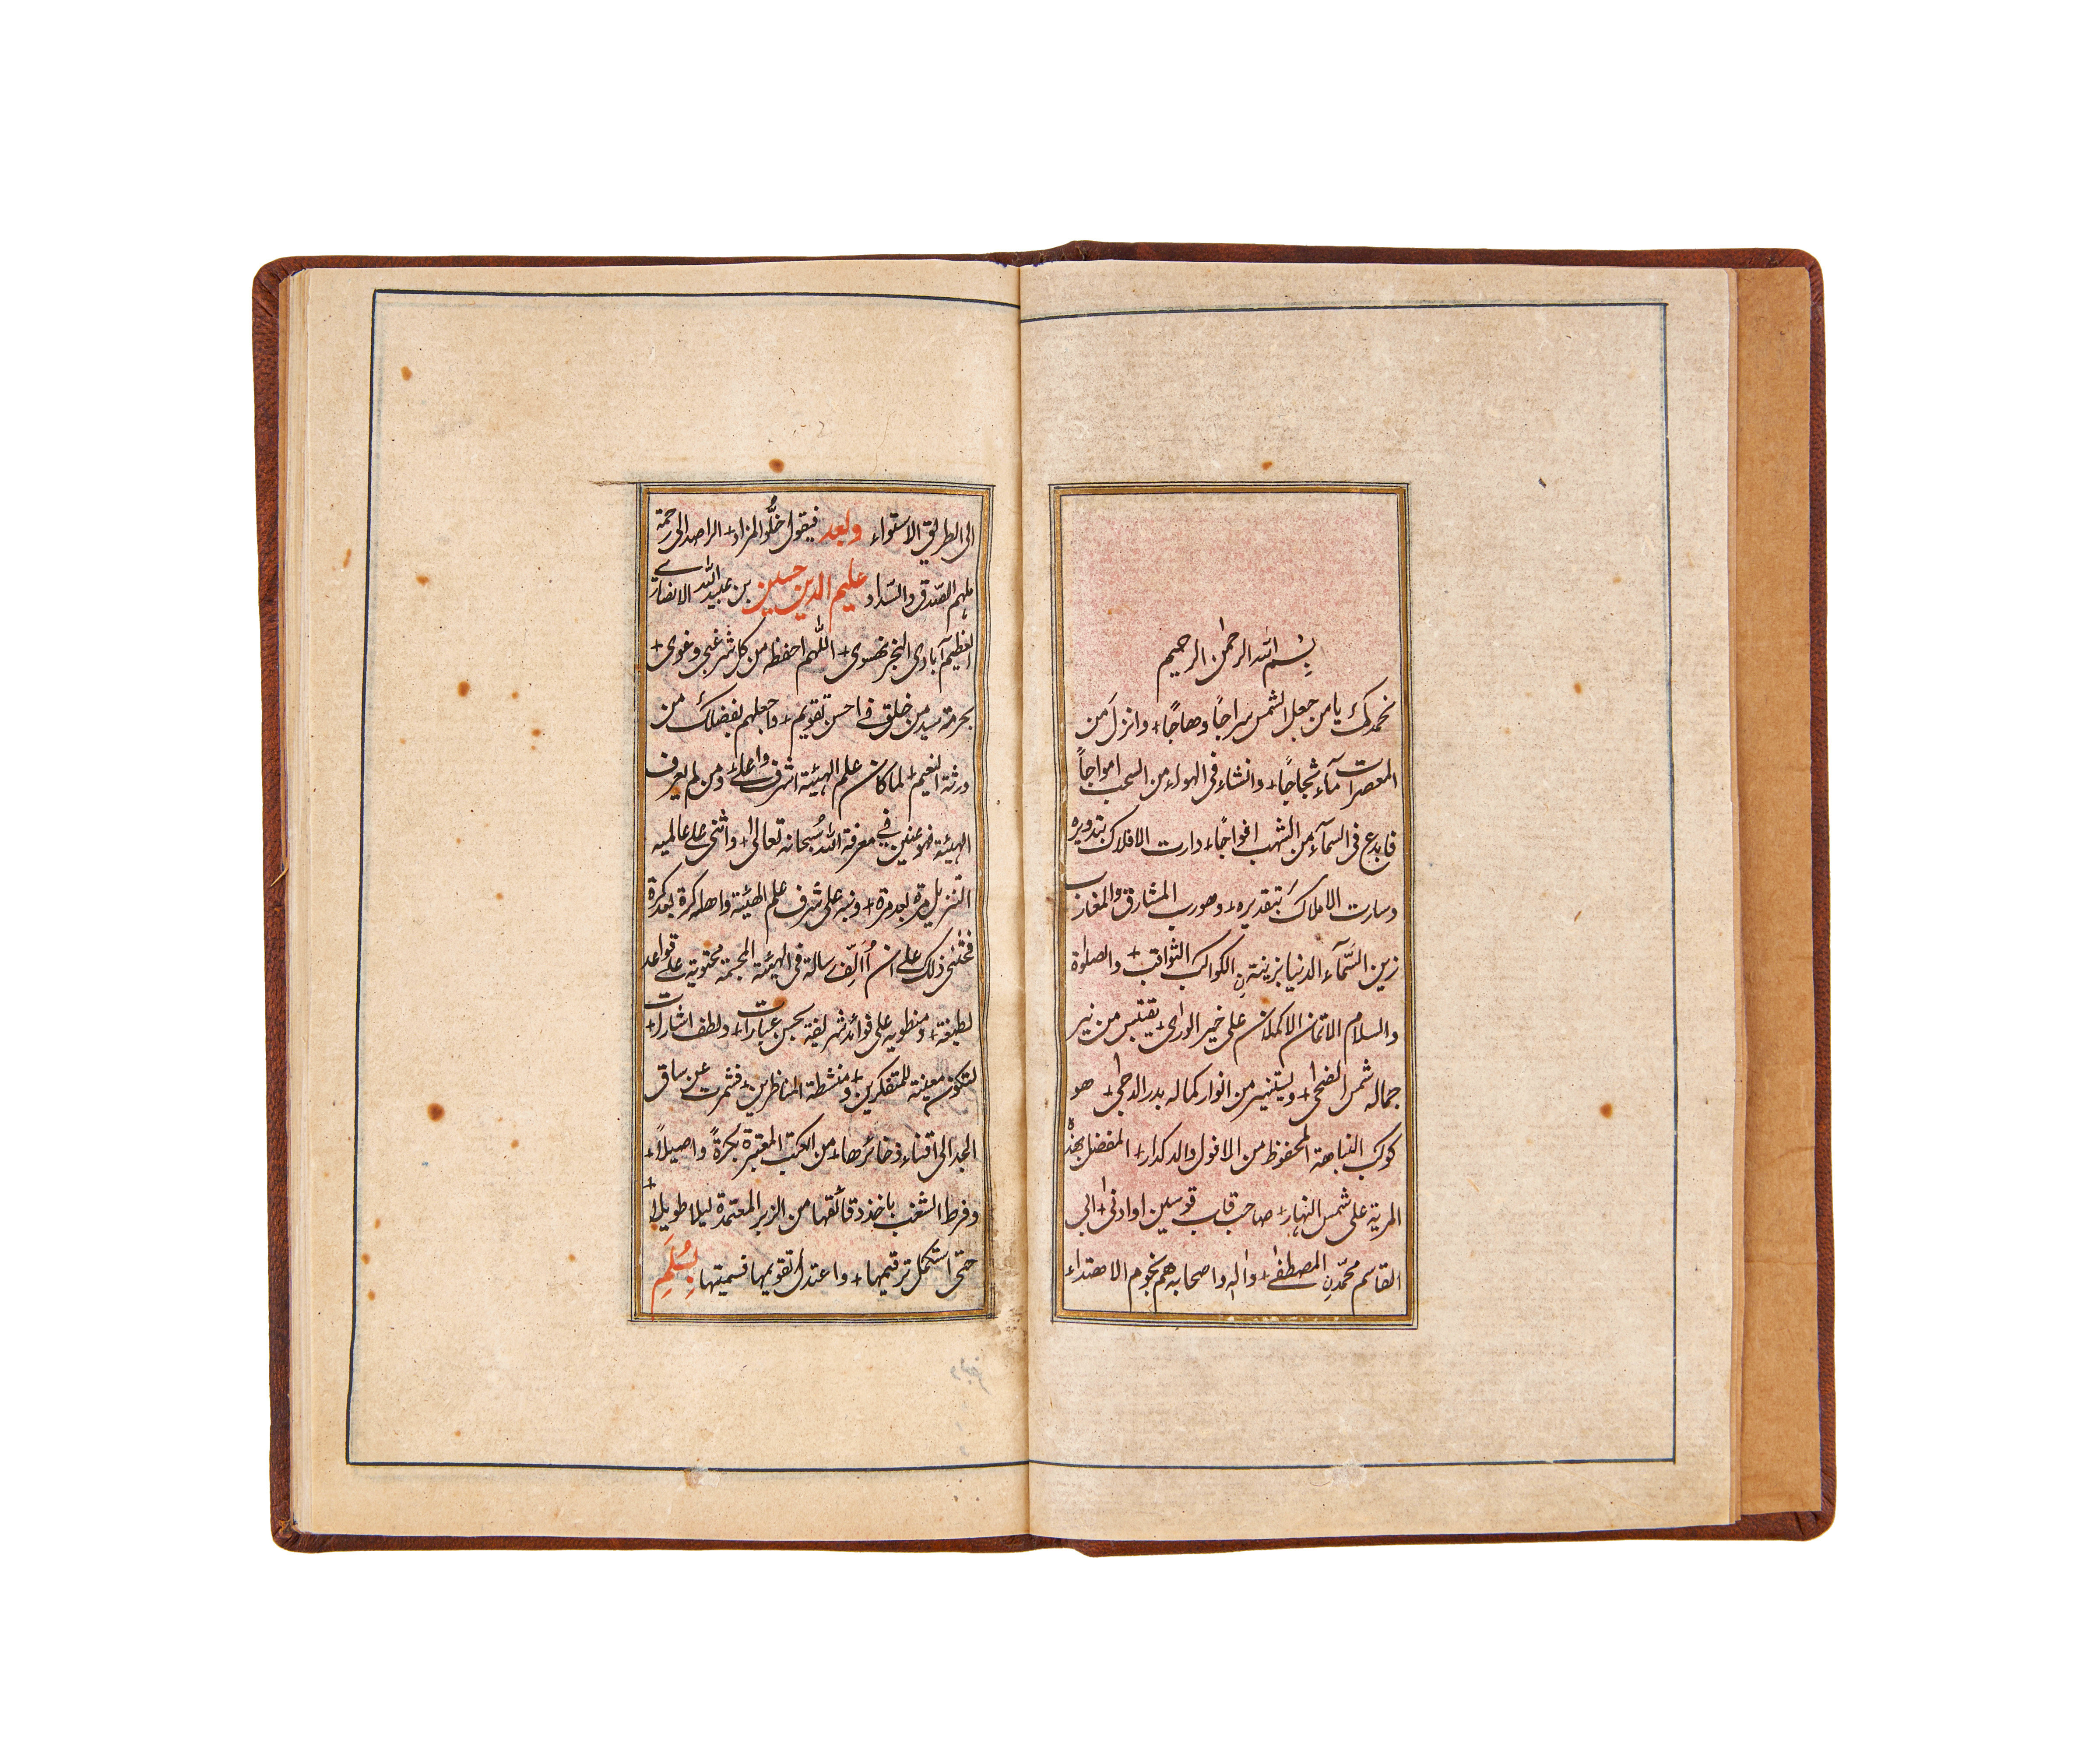 بِسْم الله الرحمٰن الرحيم
نحمدك يا من جعل الشمس سراجًا وهاجًا + وانزل من
المعصرات مآء ثجاجًا + وانشاء فى الهواء من السحب امواجاً
فابدع فى السمآء من الشهب افواجًا + دارت الافلاك بتدويره
وسارت الاملاك بتقديره + وهو رب المشارق والمغارب
زين السّمآء الدنيا بزينة نِ الكواكب الثواقب + والصلوٰة
والسلام الاتمان الاكملان على خير الورٰى + يقتبس من نير
جماله شمس الضحٰى + ويستنير من انوار كماله بدر الدجٰى + هو
كوكب النباهة المحفوظ من الافول والدكدار + المفضل بهذه
المرية على شمس النهار + صاحب قاب قوسين او ادنٰى + ابى
القاسم محمّدنِ المصطفٰے + واٰله واصحابه هم نجوم الاهتداء
الى الطريق الاستواء وبعد فيقول خلُّو المزاد + الراصد الى رحمة
ملهم الصّدق والسّداد عليم الدين حسين بن عبيد الله الانصارے
العظيم آبادى النجرنهسوى + اللّٰهم احفظه من كل شر غبى وغوى +
بحرمة سيد من خلق فے احسن تقويم + واجعلهم بفضلك من
ورثة النعيم + لما كان علم الهيئة اشرف واعلٰے ومن لم يعرف
الهيئة فهو عنين فے معرفة الله سُبحانه تعالٰى + واثنى على عالميه
التنزيل مرة بعد مرة + ونبه على شرف علم الهيئة واهله كرة بعد كرة
فحثنى ذلك على ان أُألِّف رسالة فى الهيئة المجسمة محتوية علے قواعد
لطيفة + ومنطوية على فوائد شريفة بحسن عبارات + ولطف اشارات +
لتكون معينة للمتفكرين + ومنشطة المناظرين + فشمرت عن ساق
الجد الى اقتناء ذخائرها + من الكتب المعتبرة بُكرةً واصيلاً +
وفرط الشغب باخذ دقائقها من الزبر المعتمدة ليلا طويلاً +
حتى استكمل ترقيمها + واعتدل تقويمها فسميتها بِسُلَمِ